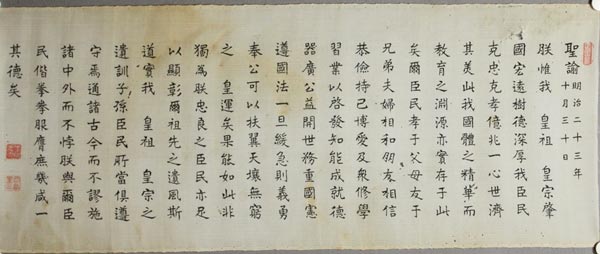 聖諭
明治二十三年
十月三十日
朕惟我 皇祖 皇宗肇
國宏遠樹德深厚我臣民
克忠克孝億兆一心世濟
其美此我國體之精華而
教育之淵源亦實存于此
矣爾臣民孝于父母友于
兄弟夫婦相和朋友相信
恭儉持己博愛及衆修學
習業以啓發知能成就德
器廣公益開世務重國憲
遵國法一旦緩急則義勇
奉公可以扶翼天壤無窮
之 皇運矣果能如此非
獨為朕忠良之臣民亦足
以顯彰爾祖先之遺風斯
道實我 皇祖 皇宗之
遺訓子孫臣民所當俱遵
守焉通諸古今而不謬施
諸中外而不悖朕與爾臣
民偕拳拳服膺庶幾咸一
其德矣